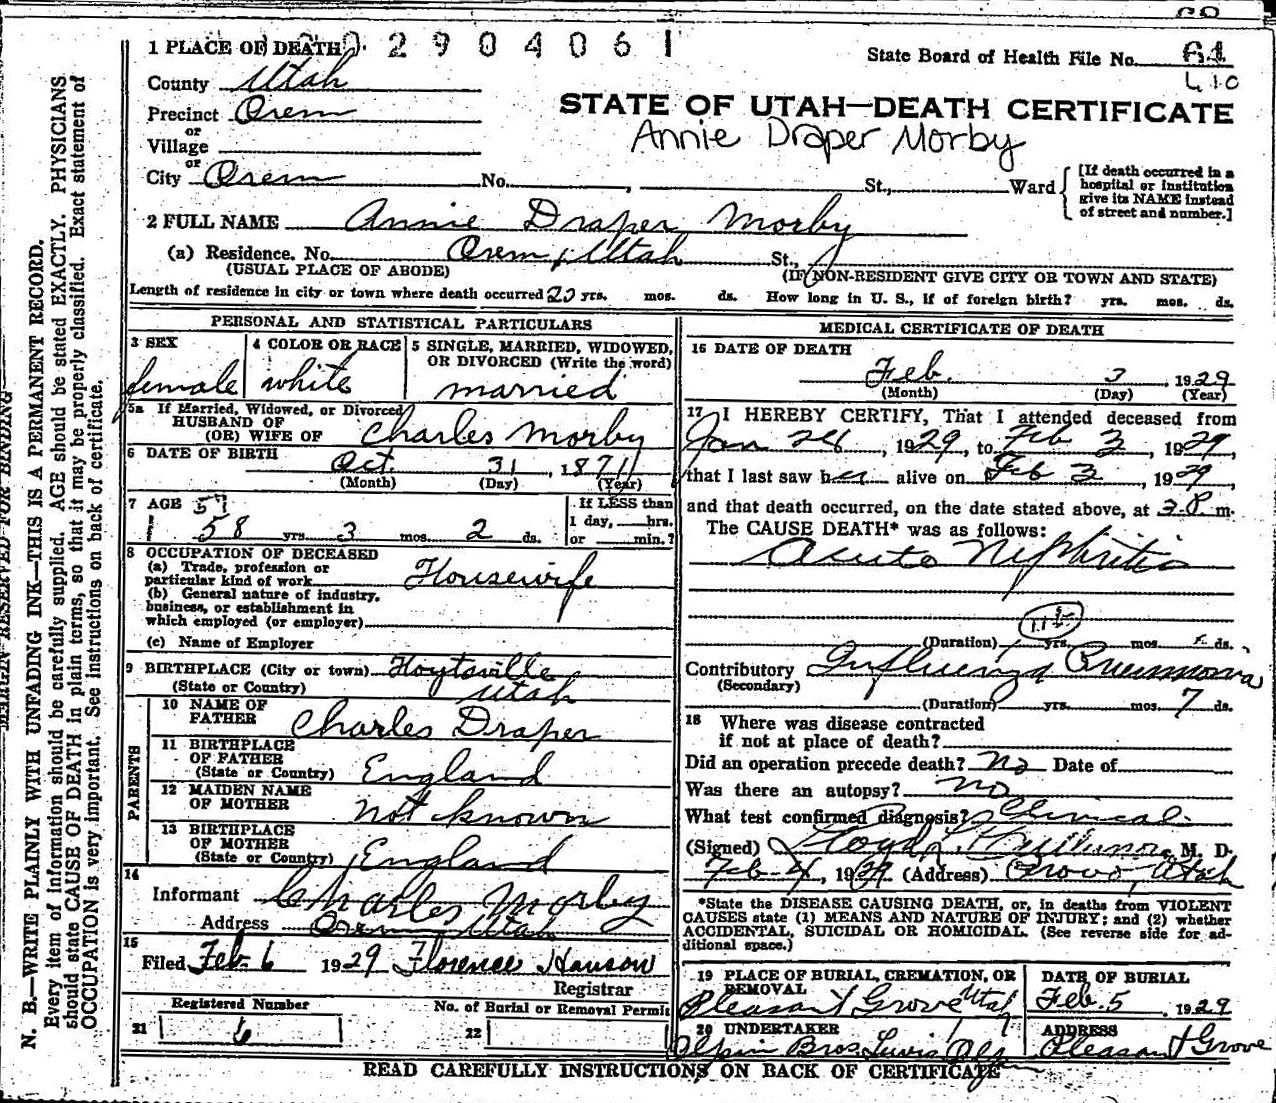 1 PLACE OF DEATH 2904061
State Board of Health File No. 61
County Utah
410
STATE OF UTAH—DEATH CERTIFICATE
Precinct Orem
Annie Draper Morby
or
Village
or
City Orem No. , St., Ward
[If death occurred in a hospital or institution give its NAME instead of street and number.]
2 FULL NAME Annie Draper Morby
(a) Residence. No. Orem, Utah St.,
(USUAL PLACE OF ABODE) (IF NON-RESIDENT GIVE CITY OR TOWN AND STATE)
Length of residence in city or town where death occurred 20 yrs. mos. ds. How long in U. S., if of foreign birth? yrs. mos. ds.
PERSONAL AND STATISTICAL PARTICULARS
3 SEX
female
4 COLOR OR RACE
white
5 SINGLE, MARRIED, WIDOWED, OR DIVORCED (Write the word)
married
5a If Married, Widowed, or Divorced
HUSBAND OF
(OR) WIFE OF Charles Morby
6 DATE OF BIRTH Oct. 31, 1871
(Month) (Day) (Year)
7 AGE 57
58 yrs. 3 mos. 2 ds.
If LESS than
1 day, hrs.
or min.?
8 OCCUPATION OF DECEASED
(a) Trade, profession or
particular kind of work Housewife
(b) General nature of industry,
business, or establishment in
which employed (or employer)
(c) Name of Employer
9 BIRTHPLACE (City or town) Hoytsville
(State or Country) Utah
PARENTS
10 NAME OF
FATHER Charles Draper
11 BIRTHPLACE
OF FATHER
(State or Country) England
12 MAIDEN NAME
OF MOTHER not known
13 BIRTHPLACE
OF MOTHER
(State or Country) England
14
Informant Charles Morby
Address Orem Utah
15
Filed Feb. 6 1929 Florence Hanson
Registrar
Registered Number
21 6
No. of Burial or Removal Permit
22
MEDICAL CERTIFICATE OF DEATH
16 DATE OF DEATH
Feb. 3, 1929
(Month) (Day) (Year)
17 I HEREBY CERTIFY, That I attended deceased from
Jan 28, 1929, to Feb 3, 1929,
that I last saw her alive on Feb 3, 1929,
and that death occurred, on the date stated above, at 3 P m.
The CAUSE DEATH* was as follows:
Acute Nephritis
(Duration) yrs. mos. ds.
Contributory Influenza Pneumonia
(Secondary)
(Duration) yrs. mos. 7 ds.
18 Where was disease contracted
if not at place of death?
Did an operation precede death? No Date of
Was there an autopsy? No
What test confirmed diagnosis? Clinical
(Signed) M. D.
Feb 4, 1929 (Address) Provo, Utah
*State the DISEASE CAUSING DEATH, or, in deaths from VIOLENT
CAUSES state (1) MEANS AND NATURE OF INJURY; and (2) whether
ACCIDENTAL, SUICIDAL OR HOMICIDAL. (See reverse side for ad-
ditional space.)
19 PLACE OF BURIAL, CREMATION, OR
REMOVAL
Pleasant Grove Utah
DATE OF BURIAL
Feb. 5, 1929
20 UNDERTAKER
Bros.
ADDRESS
Pleasant Grove
READ CAREFULLY INSTRUCTIONS ON BACK OF CERTIFICATE
MARGIN RESERVED FOR BINDING
N. B.—WRITE PLAINLY WITH UNFADING INK—THIS IS A PERMANENT RECORD.
Every item of information should be carefully supplied. AGE should be stated EXACTLY. PHYSICIANS
should state CAUSE OF DEATH in plain terms, so that it may be properly classified. Exact statement of
OCCUPATION is very important. See instructions on back of certificate.